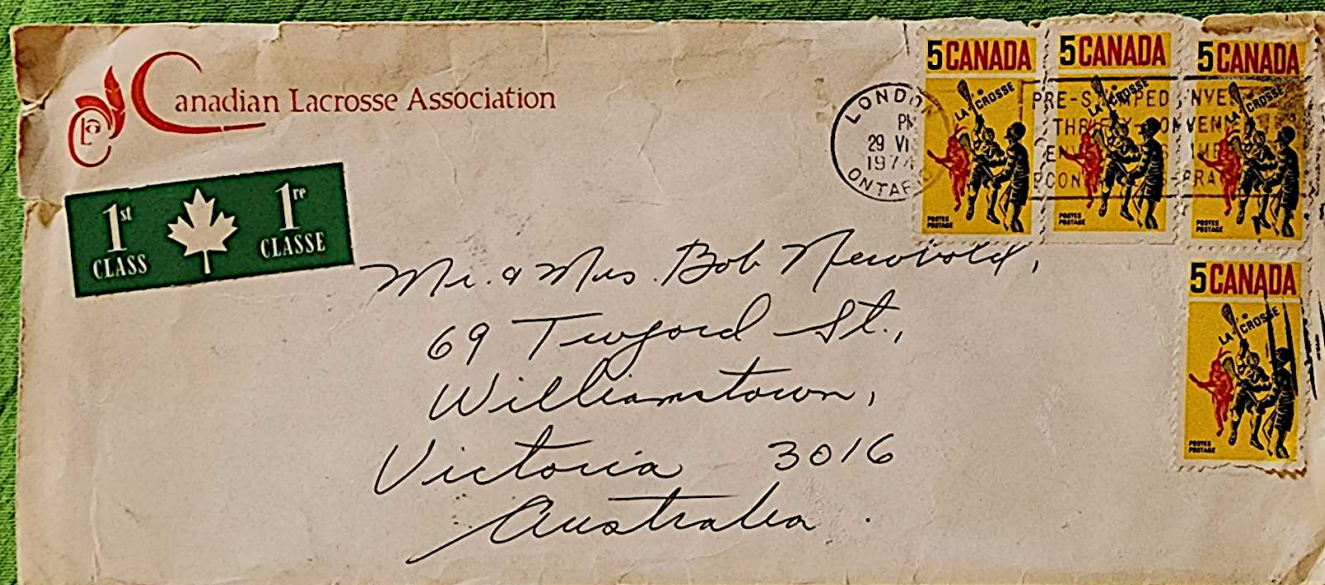 Canadian Lacrosse Association
1st CLASS
1re CLASSE
LONDON
PM
29 VI
1974
ONTARIO
PRE-STAMPED ENVE
5 CANADA
LA CROSSE
POSTES
POSTAGE
5 CANADA
LA CROSSE
POSTES
POSTAGE
5 CANADA
LA CROSSE
POSTES
POSTAGE
5 CANADA
LA CROSSE
POSTES
POSTAGE
Mr. & Mrs. Bob Newbold,
69 Twyford St.,
Williamstown,
Victoria 3016
Australia.